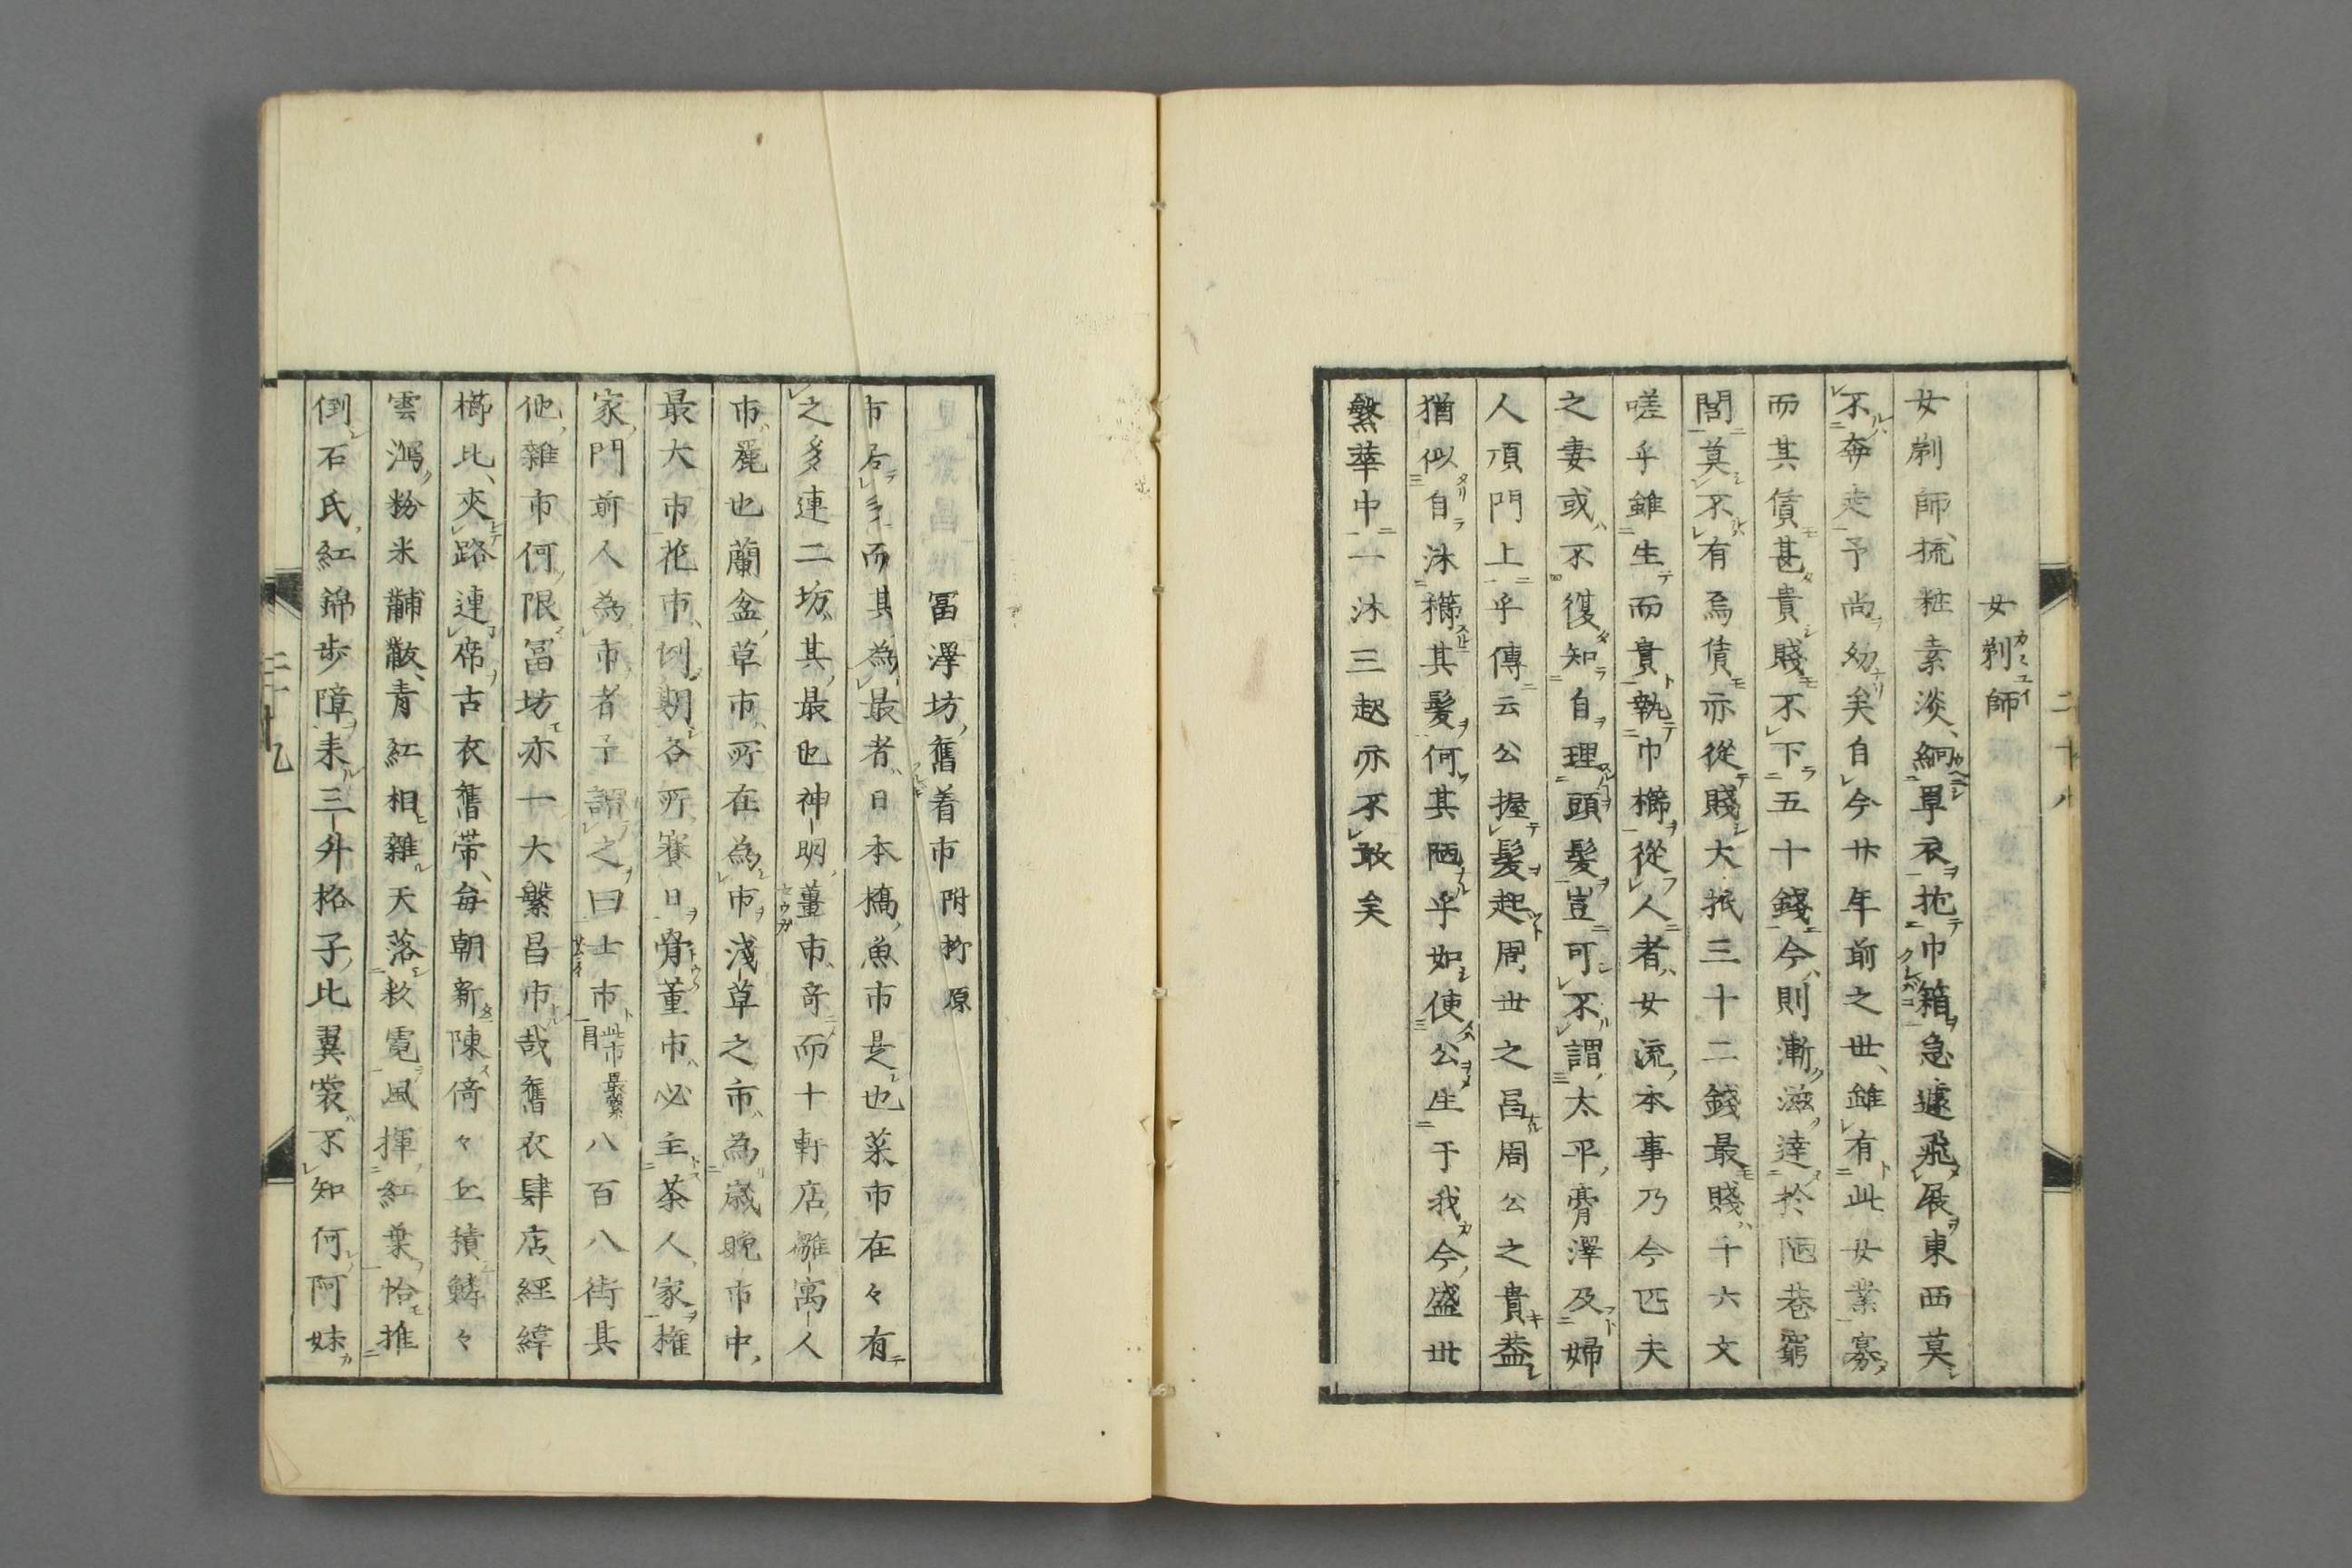 二十八
女剃師
女剃師、梳粧素淡、絅罩衣、抱巾箱、急遽飛展東西莫
不奔走予尚幼矣自今廿年前之世、雖有此女業寡
而其債甚貴賤不下五十錢今則漸滋達於陋巷窮
閭莫不有焉債亦從賤大抵三十二錢最賤十六文
嗟乎雖生而貴執巾櫛從人者女流本事乃今匹夫
之妻或不復知自理頭髮豈可不謂太平膏澤及婦
人頂門上乎傳云公握髮起周世之昌周公之貴盍
猶似自沐櫛其髮何其陋乎如使公生于我今盛世
繁華中一沐三起亦不敢矣
冨澤坊舊着市附柳原
市居多而其為最者日本橋魚市是也菜市在々有
之多連二坊其最也神明薑市奇而十軒店雛寓人
市麗也蘭盆草市所在為市淺草之市為歳晚市中
最大市花市例期各所賽日骨董市必主茶人家權
家門前人為市者予謂之曰士市此市最繁
昌八百八街其
他雜市何限冨坊亦一大繁昌市哉舊衣肆店經緯
櫛比、夾路連席古衣舊帯、每朝新陳倚々丘積鱗々
雲瀉粉米黼黻、青紅相雜天落紋霓風揮紅葉恰推
倒石氏紅錦歩障耒三升格子比翼裳不知何阿妹
二十九